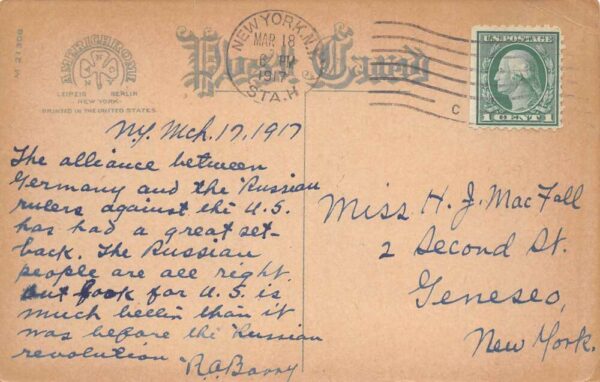 M 21308
AMERICHROME
LEIPZIG BERLIN
NEW YORK
PRINTED IN THE UNITED STATES.
Post Card
NEW YORK, N.Y.
MAR 18
PM
1917
STA. H
C
1 CENT 1
N.Y. Mch. 17, 1917
The alliance between
Germany and the Russian
rulers against the U.S.
has had a great set-
back. The Russian
people are all right.
out look for U.S. is
much better than it
was before the Russian
revolution
R.A. Barry
Miss H. J. MacFall
2 Second St.
Geneseo,
New York.